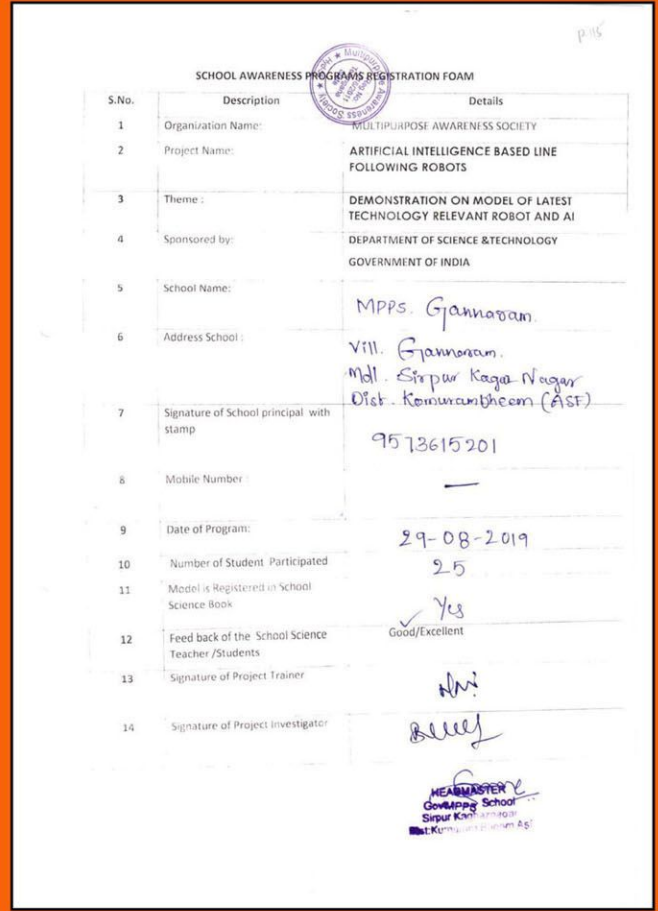 P.115
SCHOOL AWARENESS PROGRAMS REGISTRATION FOAM
S.No. Description Details
1 Organization Name: MULTIPURPOSE AWARENESS SOCIETY
2 Project Name: ARTIFICIAL INTELLIGENCE BASED LINE
FOLLOWING ROBOTS
3 Theme : DEMONSTRATION ON MODEL OF LATEST
TECHNOLOGY RELEVANT ROBOT AND AI
4 Sponsored by: DEPARTMENT OF SCIENCE &TECHNOLOGY
GOVERNMENT OF INDIA
5 School Name: MPPS. Gannaram.
6 Address School : Vill. Gannaram.
Mdl. Sirpur Kagaz Nagar
Dist. Komurambheem (ASF)
7 Signature of School principal with
stamp
9573615201
8 Mobile Number —
9 Date of Program: 29-08-2019
10 Number of Student Participated 25
11 Model is Registered in School
Science Book Yes
12 Feed back of the School Science Good/Excellent
Teacher /Students
13 Signature of Project Trainer
14 Signature of Project Investigator
HEADMASTER
Govt.MPPS School
Sirpur Kaghaznagar